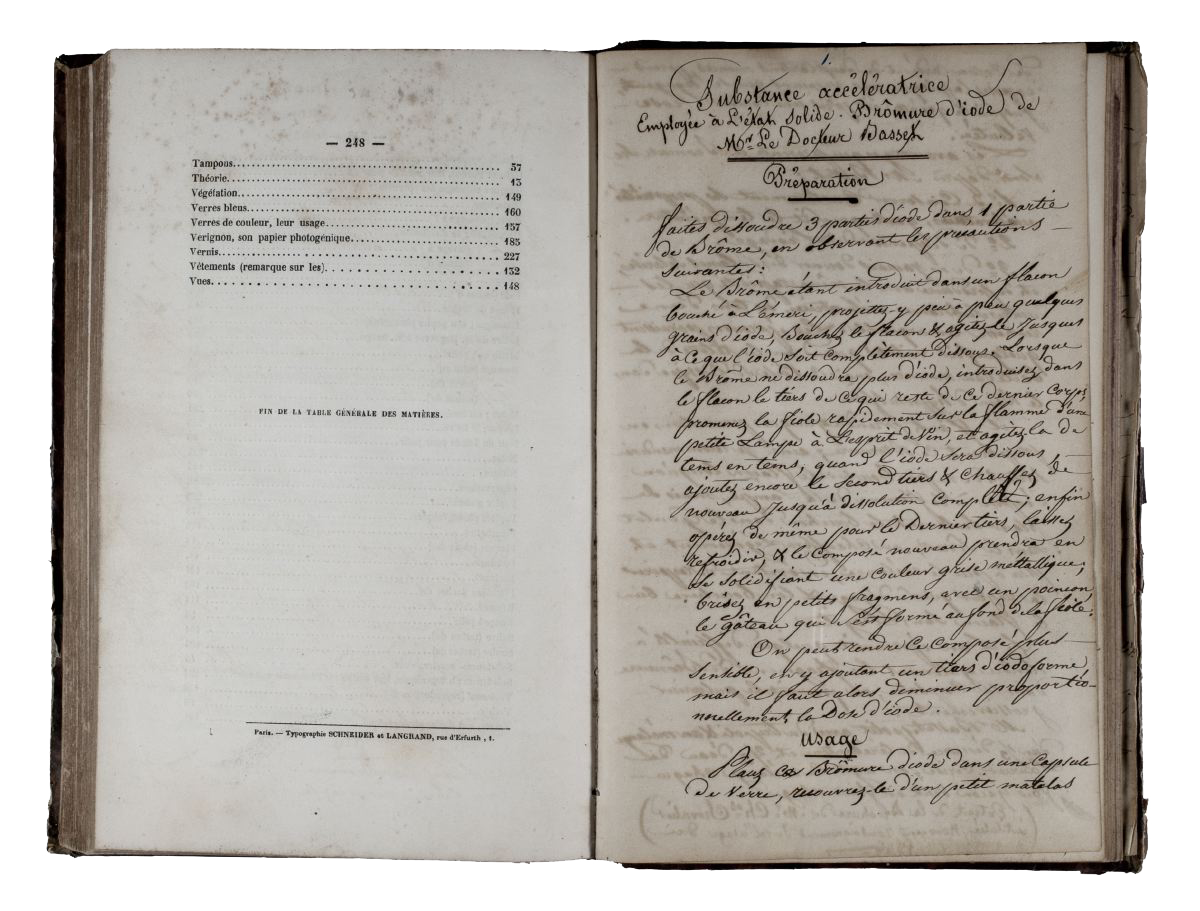 — 248 —
Tampons. 57
Théorie. 13
Végéfation. 149
Verres bleus. 160
Verres de couleur, leur usage. 157
Verignon, son papier photogénique. 185
Vernis. 227
Vêtements (remarque sur les). 132
Vues. 148
FIN DE LA TABLE GÉNÉRALE DES MATIÈRES.
Paris. — Typographie SCHNEIDER et LANGRAND, rue d'Erfurth, 1.
1.
Substance accélératrice
Employée à L'état solide. Brômure d'iode de
Mr. Le Docteur Basset
Préparation
faites dissoudre 3 parties d'iode dans 1 partie
de brôme, en observant les précautions
suivantes:
Le Brôme étant introduit dans un flacon
bouché à L'émeri, projettez-y peu à peu quelques
grains d'iode, Bouchez le flacon & agitez-le Jusques
à ce que l'iode soit complètement dissous. Lorsque
le Brôme ne dissoudra plus d'iode, introduisez dans
le flacon le tiers de ce qui reste de ce dernier corps,
promenez la fiole rapidement sur la flamme d'une
petite Lampe à L'esprit de Vin, et agitez la de
tems en tems, quand l'iode sera dissous,
ajoutez encore le second tiers & chauffez de
nouveau Jusqu'à dissolution complète; enfin
opérez de même pour le Dernier tiers, laissez
refroidir, & le composé nouveau prendra en
se solidifiant une couleur grise méttallique,
brisez en petits fragmens, avec un poinçon
le gâteau qui s'est formé au fond de la fiole.
On peut rendre ce composé plus
sensible, en y ajoutant un tiers d'iodoforme,
mais il faut alors diminuer proportio-
nnellement la Dose d'iode.
Usage
Placez ce Brômure d'iode dans une Capsule
de Verre, recouvrez-le d'un petit matelas